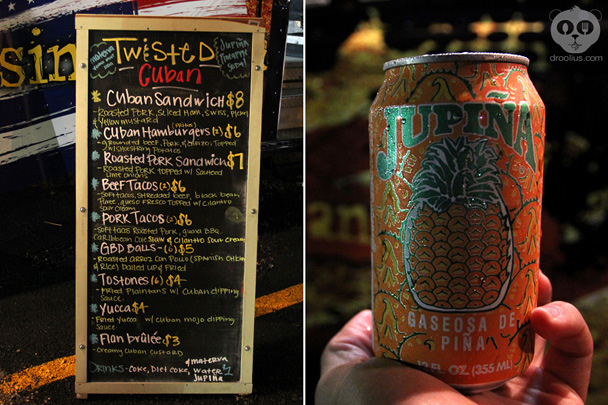 Twisted
Cuban
Jupiña
soda!
Cuban Sandwich $8
Roasted Pork, Sliced Ham, Swiss, Pickle
& Yellow mustard
(fritas)
Cuban Hamburgers (2) $6
Ground Beef, Pork, & Chorizo, Topped
w/ Shoestring Potatos
Roasted Pork Sandwich $7
Roasted Pork topped w/ Sauteed
Lime Onions
Beef Tacos (2) $6
Soft tacos, shredded beef, black bean
Puree, queso fresco topped w/ cilantro
sour cream
Pork Tacos (2) $6
Soft tacos Roasted Pork, guava BBQ,
Caribbean Cole Slaw & cilantro sour cream
GBD Balls - (4) $5
Roasted Arroz con Pollo (Spanish Chicken
& Rice) balled up & fried
Tostones (6) $4
Fried Plantains w/ Cuban dipping
Sauce
Yucca $4
Fried Yucca w/ Cuban mojo dipping
Sauce
Flan brûlée $3
Creamy Cuban Custard
Drinks - Coke, Diet Coke, Water $1
& materva
Jupiña
sin
droolius.com
JUPIÑA
GASEOSA DE
PIÑA
12 FL OZ (355 ML)